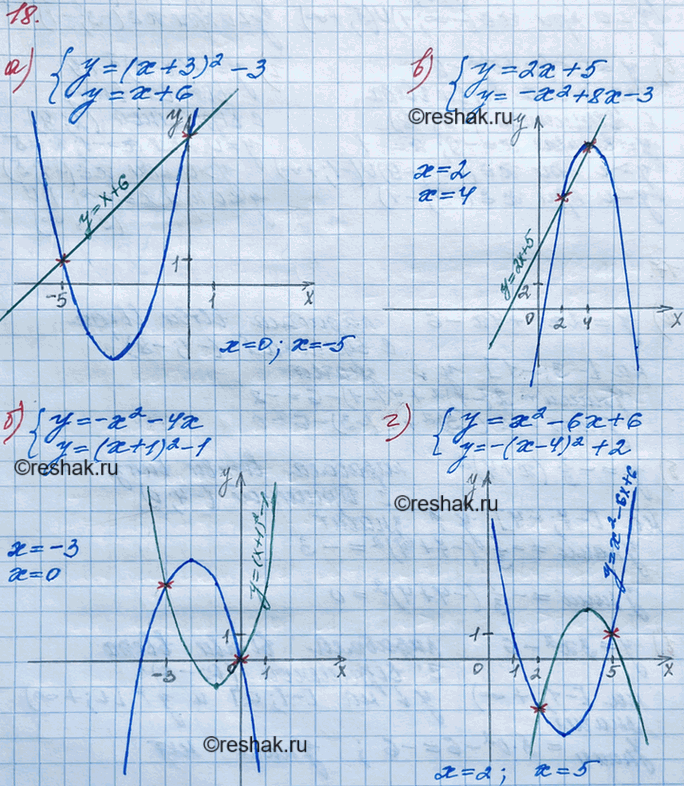 18.
а) { y = (x+3)² - 3
y = x+6
y
y = x+6
1
-5
1
x
x=0; x=-5
в) { y = 2x+5
y = -x²+8x-3
©reshak.ru
y
x=2
x=4
y=2x+5
2
0 2 4 x
б) { y = -x² - 4x
y = (x+1)² - 1
©reshak.ru
y
x=-3
x=0
y=(x+1)²-1
1
-3 0 1 x
©reshak.ru
г) { y = x² - 6x + 6
y = -(x-4)² + 2
y
©reshak.ru
y = x² - 6x + 6
1
0 1 2 5 x
x=2; x=5